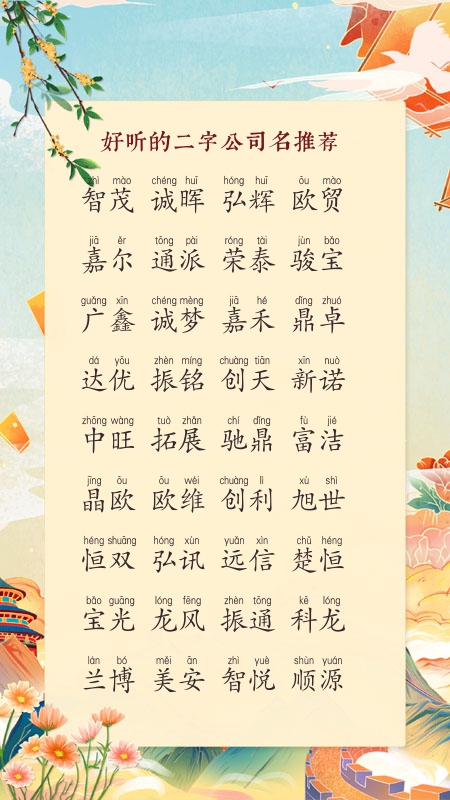 好听的二字公司名推荐
zhì mào chéng huī hóng huī ōu mào
智茂 诚晖 弘辉 欧贸
jiā ěr tōng pài róng tài jùn bǎo
嘉尔 通派 荣泰 骏宝
guǎng xīn chéng mèng jiā hé dǐng zhuó
广鑫 诚梦 嘉禾 鼎卓
dá yōu zhèn míng chuàng tiān xīn nuò
达优 振铭 创天 新诺
zhōng wàng tuò zhǎn chí dǐng fù jié
中旺 拓展 驰鼎 富洁
jīng ōu ōu wéi chuàng lì xù shì
晶欧 欧维 创利 旭世
héng shuāng hóng xùn yuǎn xìn chǔ héng
恒双 弘讯 远信 楚恒
bǎo guāng lóng fēng zhèn tōng kē lóng
宝光 龙风 振通 科龙
lán bó měi ān zhì yuè shùn yuán
兰博 美安 智悦 顺源